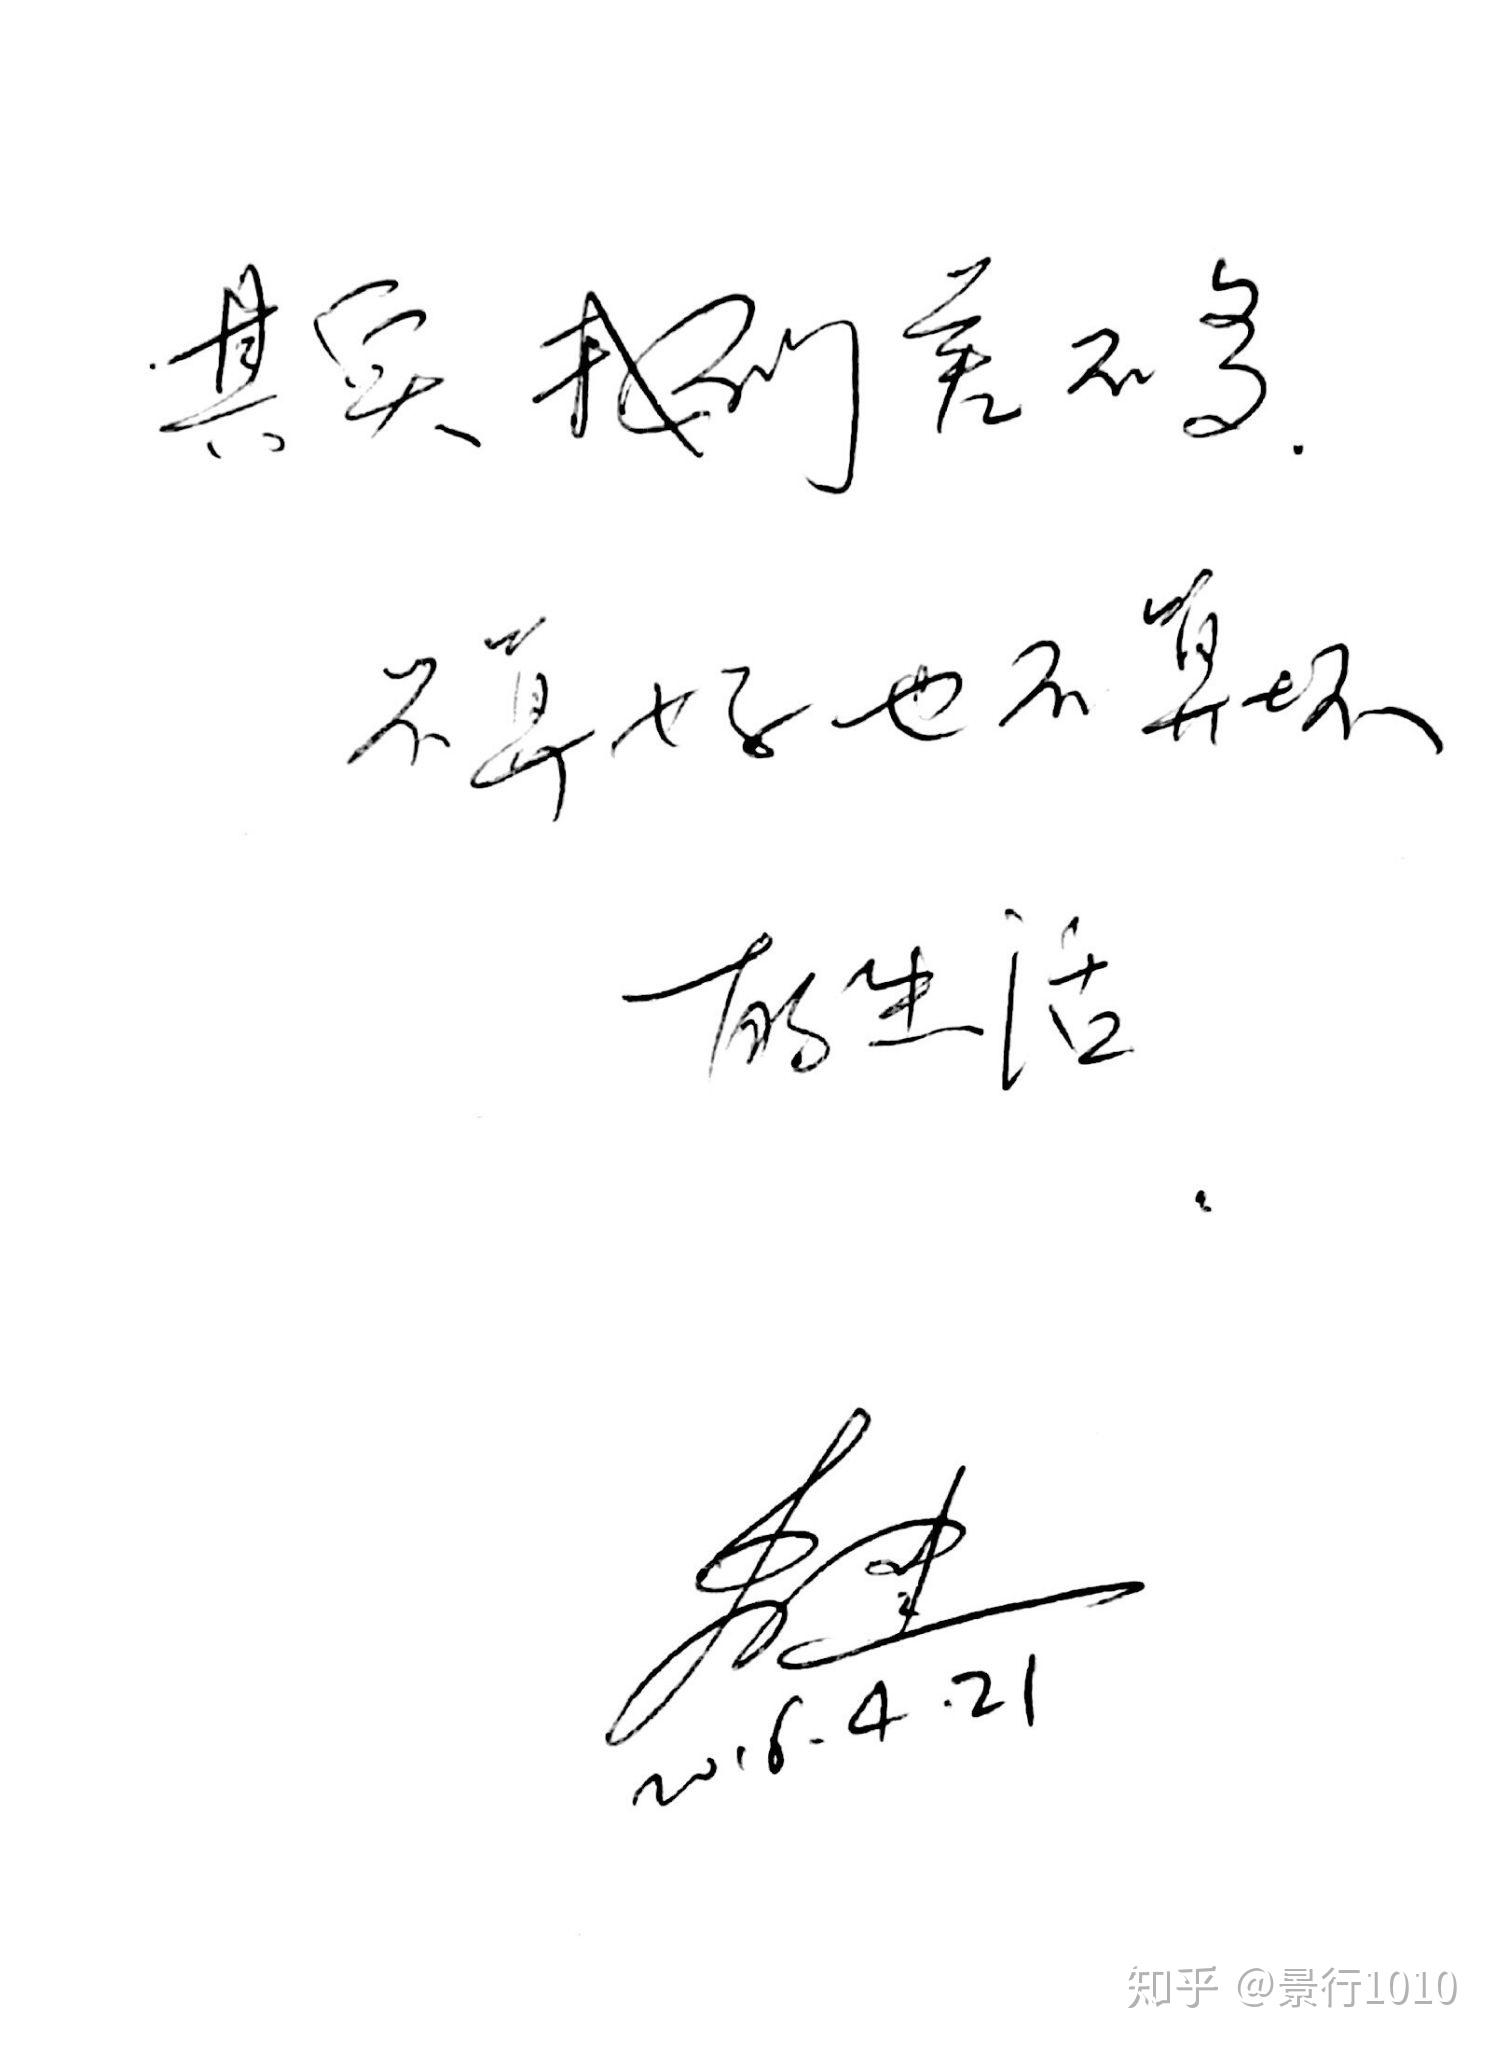 其实我们差不多.
不算好也不算坏
的生活
.
2016.4.21
知乎 @景行1010